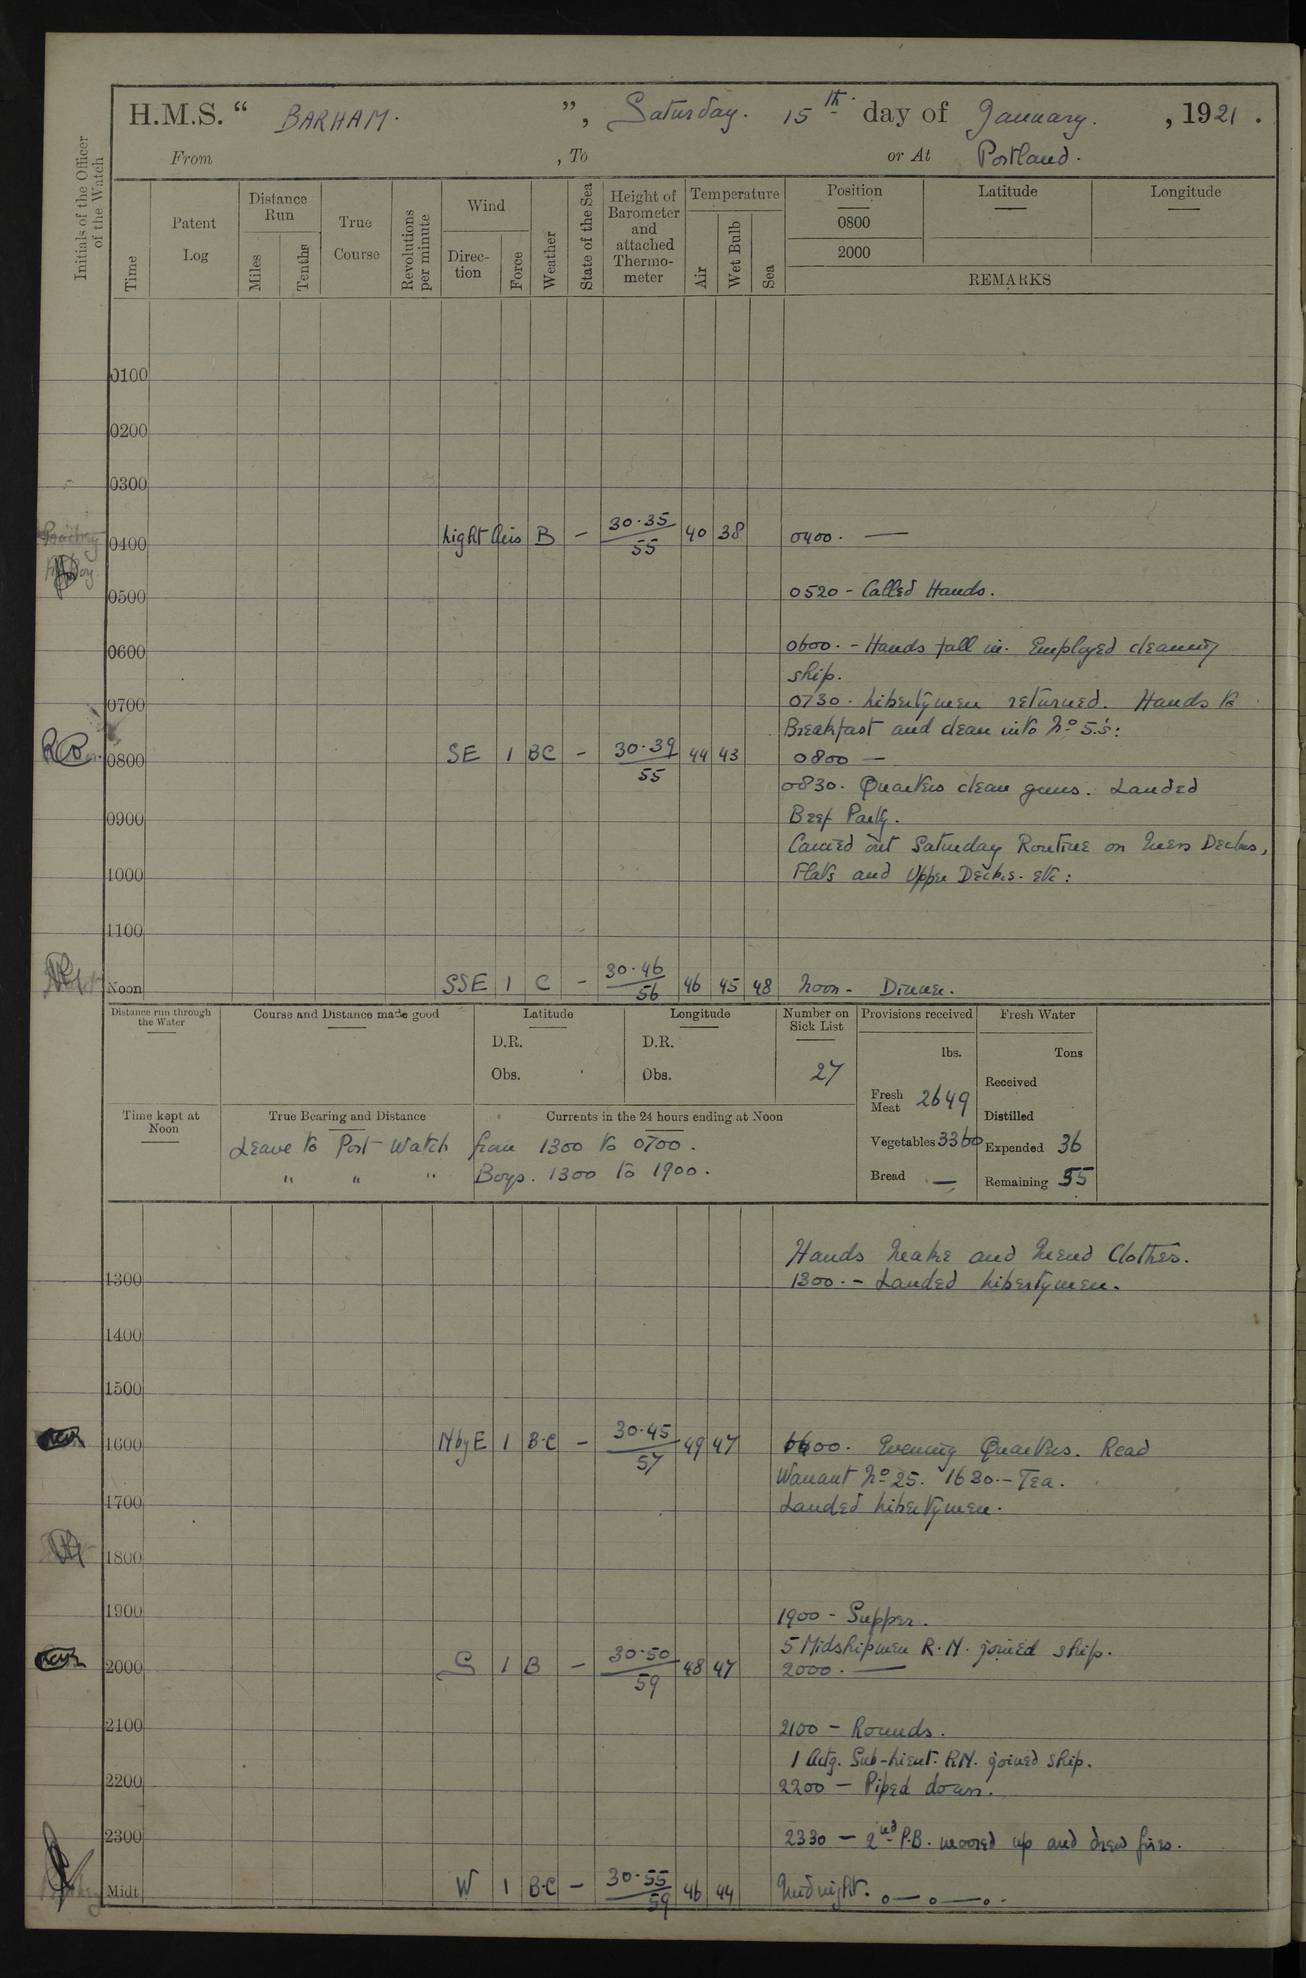 H.M.S. " BARHAM. ", Saturday. 15th day of January. , 1921 .
From , To or At Portland.
Initials of the Officer of the Watch
Time
Patent Log
Distance Run
Miles
Tenths
True Course
Revolutions per minute
Wind
Direction
Force
Weather
State of the Sea
Height of Barometer and attached Thermometer
Temperature
Air
Wet Bulb
Sea
Position Latitude Longitude
0800
2000
REMARKS
0100
0200
0300
0400 Light Airs B – 30.35 / 55 40 38 0400. —
0500 0520 - Called Hands.
0600 0600. - Hands fall in. Employed cleaning
ship.
0700 0730. Libertymen returned. Hands to
Breakfast and clean into No 5.s:
0800 SE 1 BC – 30.39 / 55 44 43 0800 —
0830. Quarters clean guns. Landed
0900 Beef Party.
Carried out Saturday Routine on Mess Decks,
1000 Flats and Upper Decks. etc:
1100
Noon SSE 1 C – 30.46 / 56 46 45 48 Noon - Dinner.
Distance run through the Water
Course and Distance made good
Latitude
D.R.
Obs.
Longitude
D.R.
Obs.
Number on Sick List
27
Provisions received
lbs.
Fresh Meat 2649
Vegetables 3360
Bread —
Fresh Water
Tons
Received
Distilled
Expended 36
Remaining 55
Time kept at Noon
True Bearing and Distance
Currents in the 24 hours ending at Noon
Leave to Port Watch from 1300 to 0700.
" " " Boys. 1300 to 1900.
Hands Make and Mend Clothes.
1300 1300. - Landed Libertymen.
1400
1500
1600 NbyE 1 B.C – 30.45 / 57 49 47 1600. Evening Quarters. Read
Warrant No 25. 1630. - Tea.
1700 Landed Libertymen.
1800
1900 1900 - Supper.
5 Midshipmen R.N. joined ship.
2000 S 1 B – 30.50 / 59 48 47 2000. —
2100 2100 - Rounds.
1 Actg. Sub-Lieut. R.N. joined ship.
2200 2200 - Piped down.
2300 2330 - 2nd P.B. moored up and drew fires.
Midt. W 1 B.C – 30.55 / 59 46 44 Midnight.